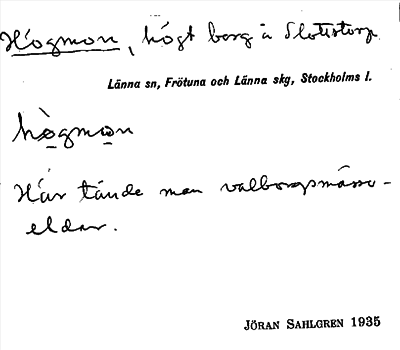 Högmon, högt berg å Slottstorp
Länna sn, Frötuna och Länna skg, Stockholms l.
hògmo̲n
Här tände man valborgsmässo-
eldar.
JÖRAN SAHLGREN 1935